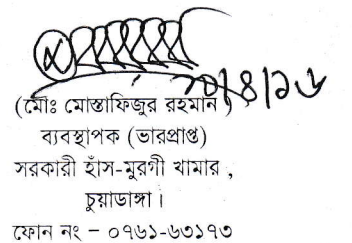 ২০/৪/১৬
(মোঃ মোস্তাফিজুর রহমান )
ব্যবস্থাপক (ভারপ্রাপ্ত)
সরকারী হাঁস-মুরগী খামার ,
চুয়াডাঙ্গা ।
ফোন নং – ০৭৬১-৬৩১৭৩